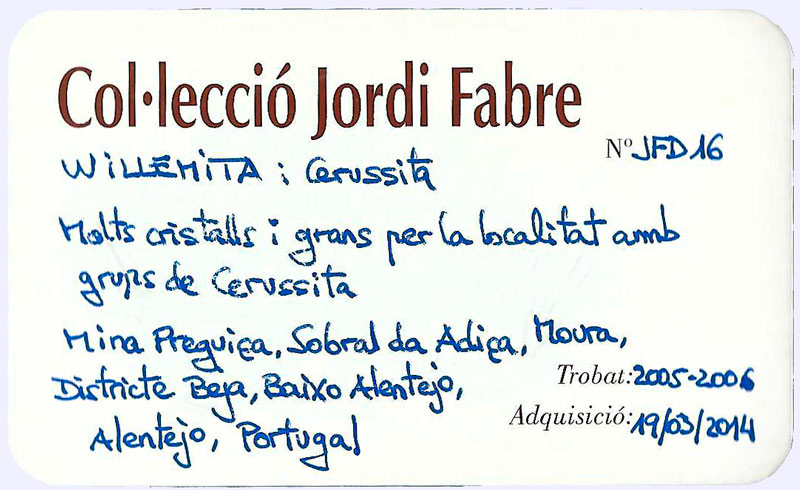 Col·lecció Jordi Fabre
Nº JFD16
WiLLEMiTA i Cerussita
Molts cristalls i grans per la localitat amb
grups de Cerussita
Mina Preguiça, Sobral da Adiça, Moura,
Districte Beja, Baixo Alentejo,
Alentejo, Portugal
Trobat: 2005-2006
Adquisició: 19/03/2014